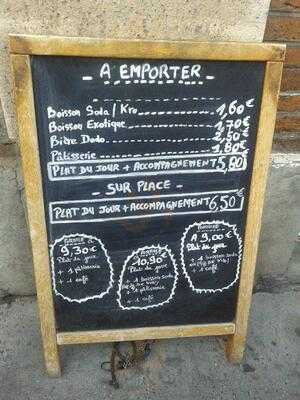 - A EMPORTER -
Boisson Soda / Kro 1,60€
Boisson Exotique 1,70€
Bière Dodo 2,50€
Pâtisserie 1,80€
PLAT DU JOUR + ACCOMPAGNEMENT 5,80€
- SUR PLACE -
PLAT DU JOUR + ACCOMPAGNEMENT 6,50€
9,30€
Plat du jour
+ 1 pâtisserie
+ 1 café
10,90€
Plat du jour
+ 1 Boisson Soda
+ 1 pâtisserie
+ 1 café
9,00€
Plat du jour
+ 1 Boisson Soda
+ 1 café